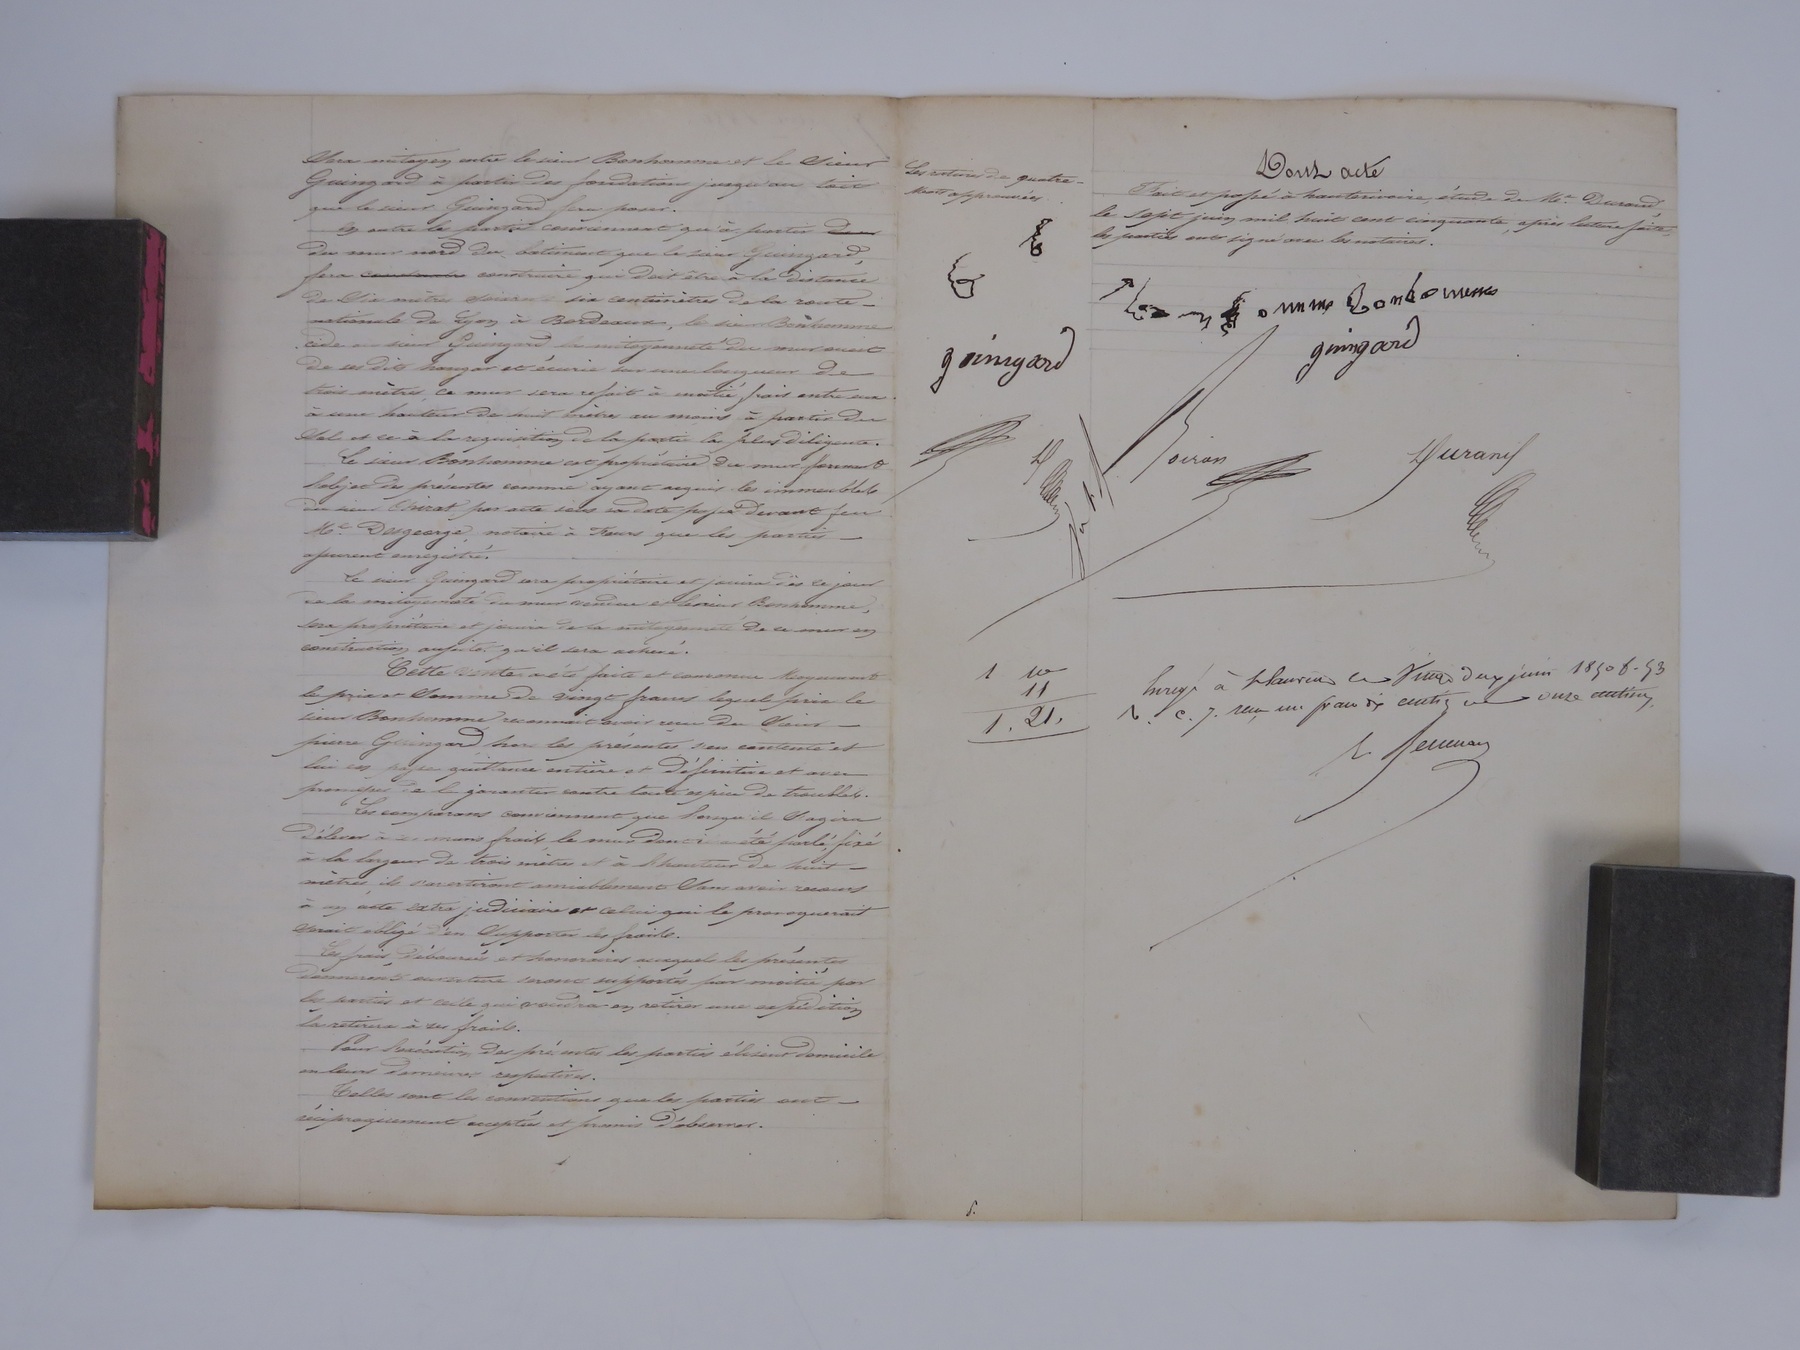 Sera mitoyen entre le sieur Bonhomme et le Sieur
Guingard à partir des fondations jusqu'au toit
que le sieur Guingard fera poser.
En outre les parties conviennent qu'à partir
du mur nord du batiment que le sieur Guingard,
fera construire qui doit être à la distance
de Six mètres soixante six centimètres de la route
nationale de Lyon à Bordeaux, le sieur Bonhomme
cède au sieur Guingard la mitoyenneté du mur ouest
de ses dits hangar et écurie sur une longueur de
trois mètres, ce mur sera refait à moitié frais entre eux
à une hauteur de huit mètres au moins à partir du
Sol et ce à la requisition de la partie la plus diligente.
Le sieur Bonhomme est propriétaire du mur formant
l'objet des présentes comme ayant acquis les immeubles
du sieur Chirat par acte sous sa date passé devant feu
Me Desgeorge, notaire à Feurs que les parties
assurent enregistré.
Le sieur Guingard sera propriétaire et jouira dès ce jour
de la mitoyenneté du mur vendue et le sieur Bonhomme,
sera propriétaire et jouira de la mitoyenneté de ce mur en
construction aussitôt qu'il sera achevé.
Cette vente a été faite et convenue Moyennant
le prix et Somme de vingt francs lequel prix le
sieur Bonhomme reconnait avoir reçu du Sieur
pierre Guingard hors les présentes s'en contente et
lui en passe quittance entière et définitive et avec
promesse de le garantir contre toute espèce de troubles.
Les comparans conviennent que lorsqu'il S'agira
d'élever à communs frais le mur dont il a été parlé, fixé
à la largeur de trois mètres et à la hauteur de huit
mètres, ils s'avertiront amiablement Sans avoir recours
à un acte extra judiciaire et celui qui le provoquerait
serait obligé d'en Supporter les frais.
Les frais, déboursés et honoraires auxquels les présentes
donneront ouverture seront supportés par moitié par
les parties et celle qui voudra en retirer une expédition
la retirera à ses frais.
Pour l'exécution des présentes les parties élisent domicile
en leurs demeures respectives.
Telles sont les conventions que les parties ont
réciproquement acceptées et promis d'observer.
Les ratures de quatre
Mots approuvées
guingard
Dont acte
Fait et passé à hauterivoire, étude de Me Durand
le Sept juin mil huit cent cinquante, après lecture faite
les parties ont signé avec les notaires.
Bonhomme
guingard
Poiron
Durand
1 10
11
1. 21.
Enregé à St Laurent le Vingt deux juin 1850 f. 53
V. C. 7. reçu un franc dix centimes onze centimes